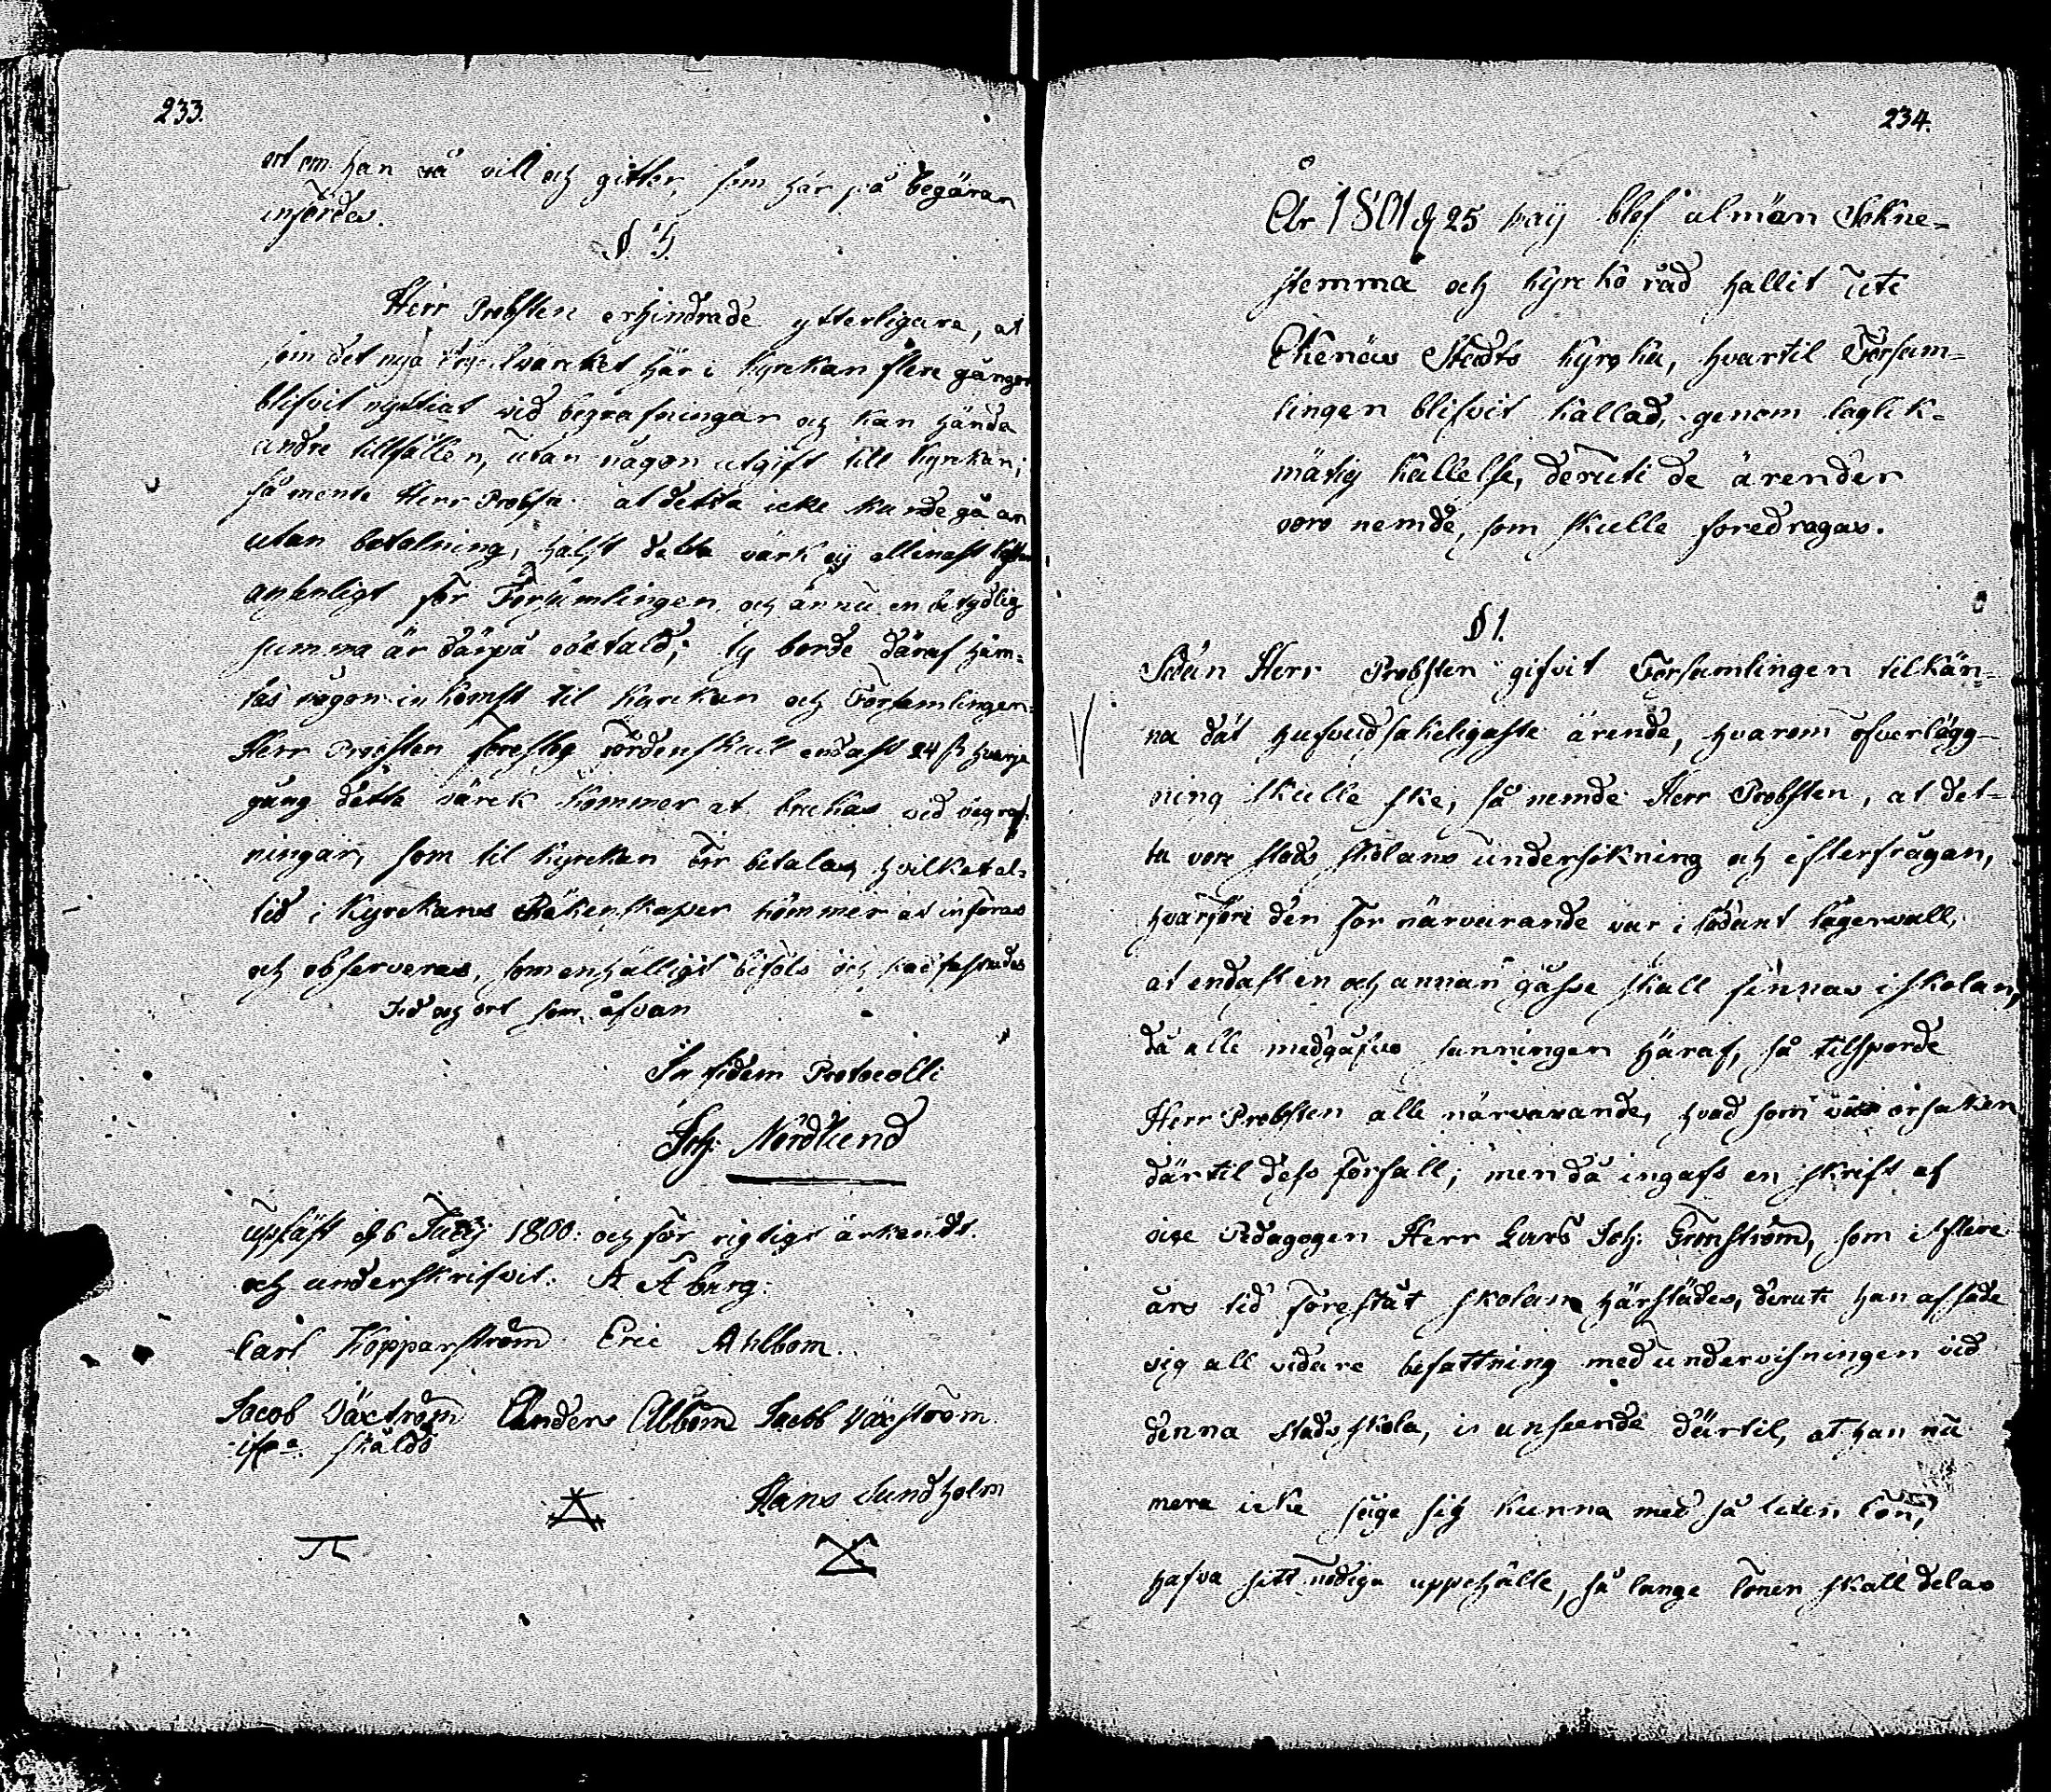 233.
ort om han så vill och gitter, som här på begäran
infördes.
§ 5.
Herr Probsten erhindrade ytterligare, at
som det nya Orgelwärcket här i kyrckan flere gånger
blifvit nyttiat vid begrafningar och kan hända
andre tillfällen, utan någon utgift till kyrckan;
så mente Herr Probsten at detta icke kunde gå an
utan betalning, hälst detta värk ej allenast
ansenligt för Församlingen, och ännu en betydlig
summa är därpå obetald; ty borde däraf häm-
tas någon inkomst til kyrckan och Församlingen.
Herr Probsten föreslog fördenskull endast 24 ß hvarje
gång detta värck kommer at brukas vid begraf-
ningar, som til kyrckan bör betalas, hvilket al-
tid i Kyrckans Räkenskaper kommer at införas
och observeras, som enhälligt bifölls och stadfästades
Tid och ort som åfvan
In fidem Protocolli
Joh: Nordlund
Upläst d 6 Julij 1800: och för rigtigt ärkendt.
och underskrifvit. A Åburg.
Carl Kopparström Eric Ahlbom.
Jacob Wäxtröm Anders Albom Jacob Wäxström
skålds
Hans Sundholm
234.
År 1801 d 25 Maij blef almän Sokne-
stemma och kyrckoråd hållit uti
Ekenäs Stadts kyrcka, hvartil Försam-
lingen blifvit kallad, genom laglik-
mätig kallelse, deruti de ärender
voro nemde, som skulle föredragas.
§ 1.
Sedan Herr Probsten gifvit Församlingen tilkän-
na dät hufvudsakeligaste ärende, hvarom öfverlägg-
ning skulle ske, så nemde Herr Probsten, at det-
ta vore stads skolans undersökning och efterfrågan,
hvarföre den för närvarande var i sådant lägervall,
at endast en och annan gåsse skall finnas i skolan,
då alle medgåfvo sanningen häraf, så tilsporde
Herr Probsten alle närvarande, hvad som vore orsaken
därtil dess förfall; men då ingafs en skrift af
vice Pedagogen Herr Lars Joh: Grönström, som i flere
års tid förestått skolan härstädes, deruti han afsade
sig all vidare befattning med undervisningen vid
denna stads skola, i anseende därtil, at han nu
mera icke säge sig kunna med så liten lön,
hafva sitt nödiga uppehälle, så länge lönen skall delas